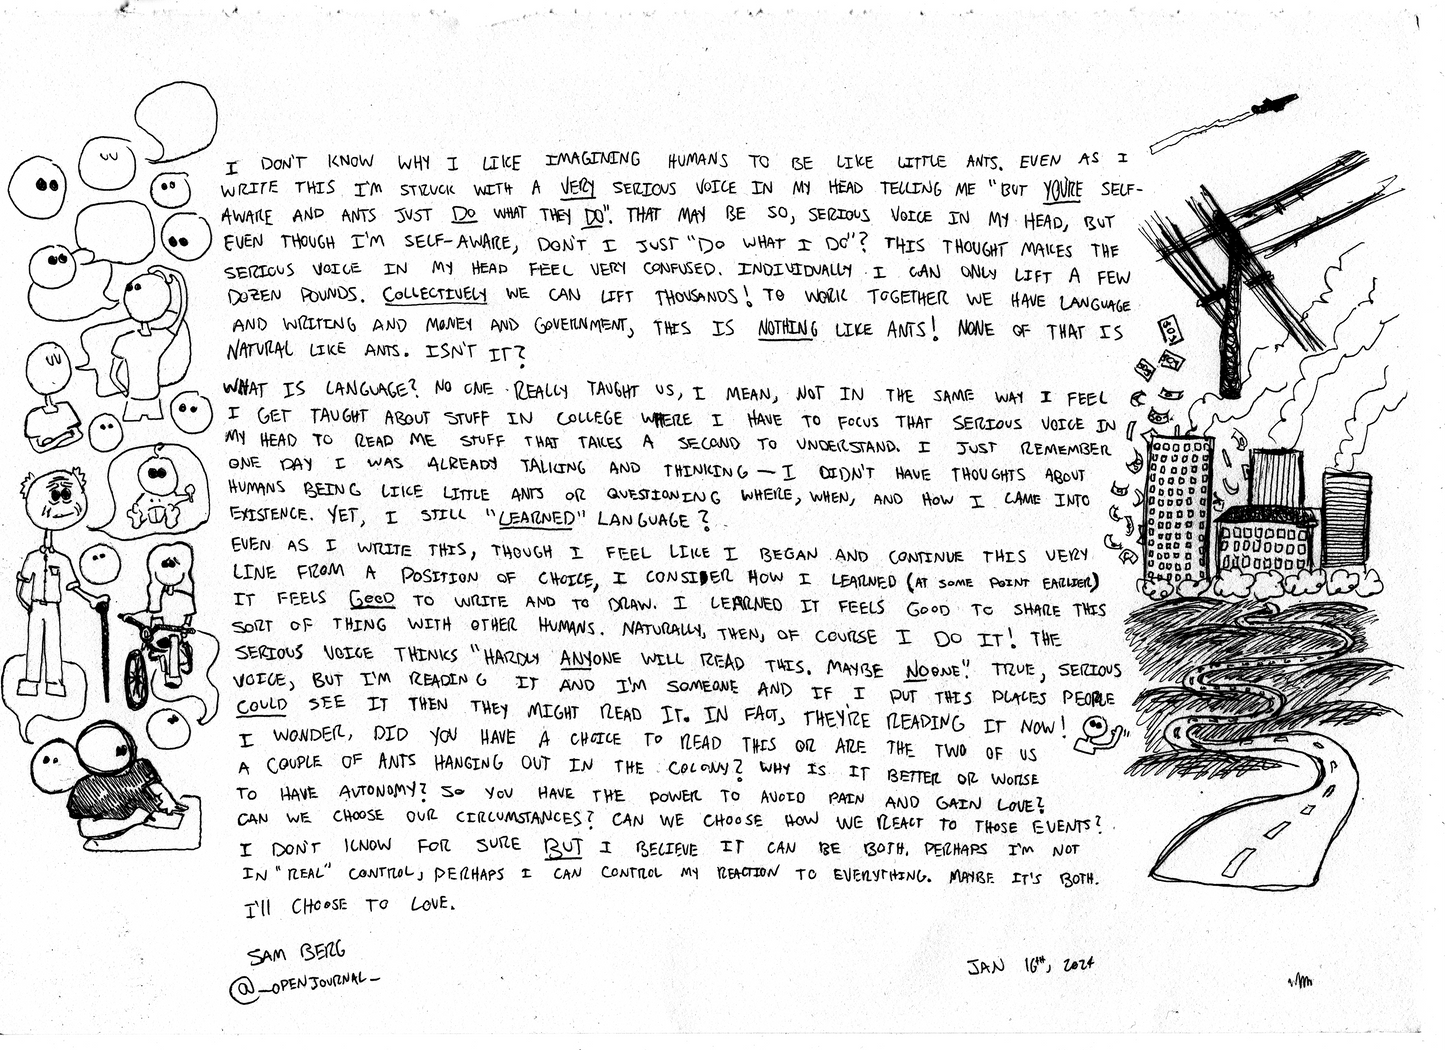 I DON'T KNOW WHY I LIKE IMAGINING HUMANS TO BE LIKE LITTLE ANTS. EVEN AS I
WRITE THIS I'M STRUCK WITH A VERY SERIOUS VOICE IN MY HEAD TELLING ME "BUT YOU'RE SELF-
AWARE AND ANTS JUST DO WHAT THEY DO". THAT MAY BE SO, SERIOUS VOICE IN MY HEAD, BUT
EVEN THOUGH I'M SELF-AWARE, DON'T I JUST "DO WHAT I DO"? THIS THOUGHT MAKES THE
SERIOUS VOICE IN MY HEAD FEEL VERY CONFUSED. INDIVIDUALLY I CAN ONLY LIFT A FEW
DOZEN POUNDS. COLLECTIVELY WE CAN LIFT THOUSANDS! TO WORK TOGETHER WE HAVE LANGUAGE
AND WRITING AND MONEY AND GOVERNMENT, THIS IS NOTHING LIKE ANTS! NONE OF THAT IS
NATURAL LIKE ANTS. ISN'T IT?
WHAT IS LANGUAGE? NO ONE REALLY TAUGHT US, I MEAN, NOT IN THE SAME WAY I FEEL
I GET TAUGHT ABOUT STUFF IN COLLEGE WHERE I HAVE TO FOCUS THAT SERIOUS VOICE IN
MY HEAD TO READ ME STUFF THAT TAKES A SECOND TO UNDERSTAND. I JUST REMEMBER
ONE DAY I WAS ALREADY TALKING AND THINKING — I DIDN'T HAVE THOUGHTS ABOUT
HUMANS BEING LIKE LITTLE ANTS OR QUESTIONING WHERE, WHEN, AND HOW I CAME INTO
EXISTENCE. YET, I STILL "LEARNED" LANGUAGE?
EVEN AS I WRITE THIS, THOUGH I FEEL LIKE I BEGAN AND CONTINUE THIS VERY
LINE FROM A POSITION OF CHOICE, I CONSIDER HOW I LEARNED (AT SOME POINT EARLIER)
IT FEELS GOOD TO WRITE AND TO DRAW. I LEARNED IT FEELS GOOD TO SHARE THIS
SORT OF THING WITH OTHER HUMANS. NATURALLY, THEN, OF COURSE I DO IT! THE
SERIOUS VOICE THINKS "HARDLY ANYONE WILL READ THIS. MAYBE NO ONE." TRUE, SERIOUS
VOICE, BUT I'M READING IT AND I'M SOMEONE AND IF I PUT THIS PLACES PEOPLE
COULD SEE IT THEN THEY MIGHT READ IT. IN FACT, THEY'RE READING IT NOW!
I WONDER, DID YOU HAVE A CHOICE TO READ THIS OR ARE THE TWO OF US
A COUPLE OF ANTS HANGING OUT IN THE COLONY? WHY IS IT BETTER OR WORSE
TO HAVE AUTONOMY? SO YOU HAVE THE POWER TO AVOID PAIN AND GAIN LOVE?
CAN WE CHOOSE OUR CIRCUMSTANCES? CAN WE CHOOSE HOW WE REACT TO THOSE EVENTS?
I DON'T KNOW FOR SURE BUT I BELIEVE IT CAN BE BOTH. PERHAPS I'M NOT
IN "REAL" CONTROL, PERHAPS I CAN CONTROL MY REACTION TO EVERYTHING. MAYBE IT'S BOTH.
I'll CHOOSE TO LOVE.
SAM BERG
@_OPENJOURNAL_
JAN 16TH, 2024